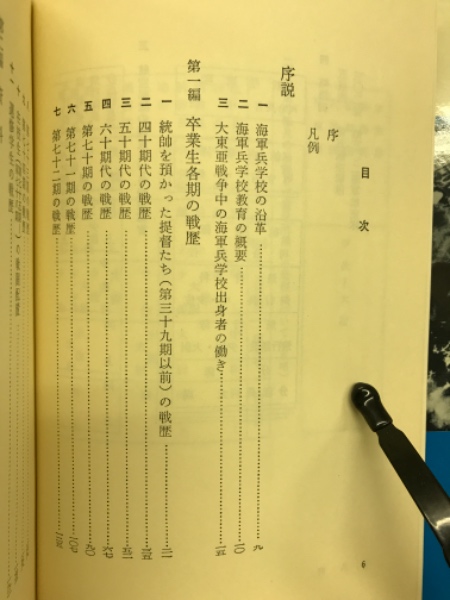 目次
序
凡例
序説
一 海軍兵学校の沿革 九
二 海軍兵学校教育の概要 一〇
三 大東亜戦争中の海軍兵学校出身者の働き 一五
第一編 卒業生各期の戦歴
一 統帥を預かった提督たち(第三十九期以前)の戦歴 二一
二 四十期代の戦歴 三五
三 五十期代の戦歴 五二
四 六十期代の戦歴 六七
五 第七十期の戦歴 九〇
六 第七十一期の戦歴
七 第七十二期の戦歴
6